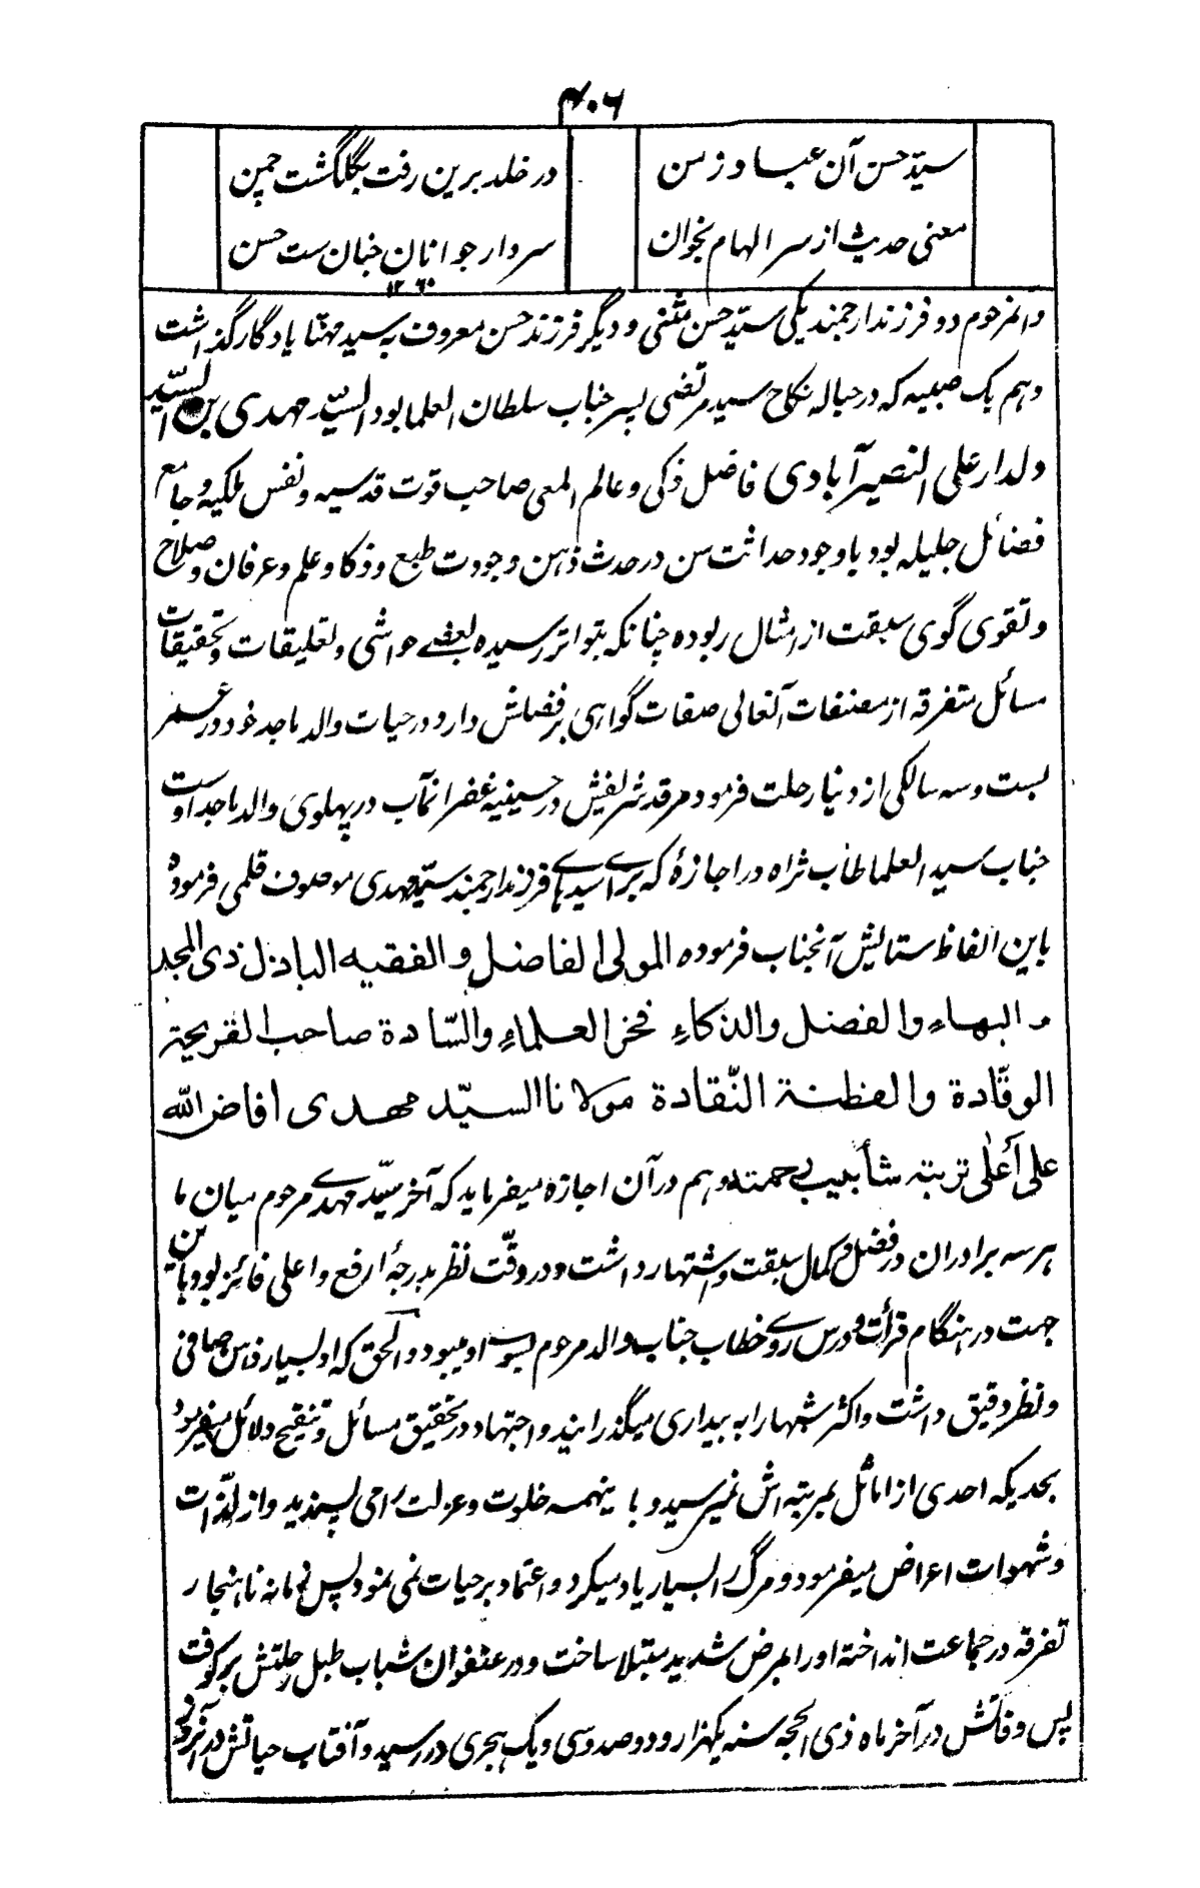 ۴۰۶
سیّد حسن آن عباد زمن در خلد برین رفت بگلگشت چمن
معنی حدیث از سر الهام بخوان سردار جوانان جنان ست حسن
۱۲۶۰
وآنمرحوم دو فرزند ارجمند یکی سیّد حسن مثنی و دیگر فرزند حسن معروف به سید مهنّا یادگار گذاشت
وهم یک صبیه که در حباله نکاح سید مرتضی پسر جناب سلطان العلما بود السیّد مهدی بن السیّد
دلدار علی النصیرآبادی فاضل ذکی و عالم المعی صاحب قوت قدسیه و نفس ملکیه و جامع
فضائل جلیله بود باوجود حداثت سن در حدث ذهن و جودت طبع و ذکا و علم و عرفان و صلاح
و تقوی گوی سبقت از امثال ربوده چنانکه بتواتر رسیده بعضے حواشی و تعلیقات و تحقیقات
مسائل متفرقه از مصنفات آنعالی صفات گواهی بر فضلش دارد در حیات والد ماجد خود در عمر
بست و سه سالگی از دنیا رحلت فرمود مرقد شریفش در حسینیه غفرانمآب در پهلوی والد ماجد اوست
جناب سید العلما طاب ثراه در اجازهٔ که برای سید هادے فرزند ارجمند سیّد مهدی موصوف قلمی فرموده
باین الفاظ ستایش آنجناب فرموده المولی الفاضل والفقیه الباذل ذی المجد
والبهاء والفضل والذکاء فخر العلماء والسّادة صاحب القریحة
الوقّادة والفطنة النّقادة مولانا السیّد مهدی افاض الله
علی أعلٰی تربته شآبیب رحمته وهم در آن اجازه میفرماید که آخر سیّد مهدے مرحوم میان ما
هر سه برادران در فضل و کمال سبقت و اشتهار داشت و در دقّت نظر بدرجهٔ ارفع و اعلی فائز بود باین
جهت در هنگام قرأت و درس روے خطاب جناب والد مرحوم بسوے او میبود و الحق که او بسیار ذهن صافی
و نظر دقیق داشت و اکثر شبها را به بیداری میگذرانید و اجتهاد در تحقیق مسائل و تنقیح دلائل میفرمود
بحدیکه احدی از اماثل بمرتبه اش نمیرسید و با ینهمه خلوت و عزلت را می پسندید و از لذّات
و شهوات اعراض میفرمود و مرگ را بسیار یاد میکرد و اعتماد بر حیات نمی نمود پس زمانه ناهنجار
تفرقه در جماعت انداخته او را بمرض شدید مبتلا ساخت و در عنفوان شباب طبل رحلتش بر کوفت
پس وفاتش در آخر ماه ذی الحجه سنه یکهزار و دو صد و سی و یک هجری در رسید و آفتاب حیاتش در آنروز